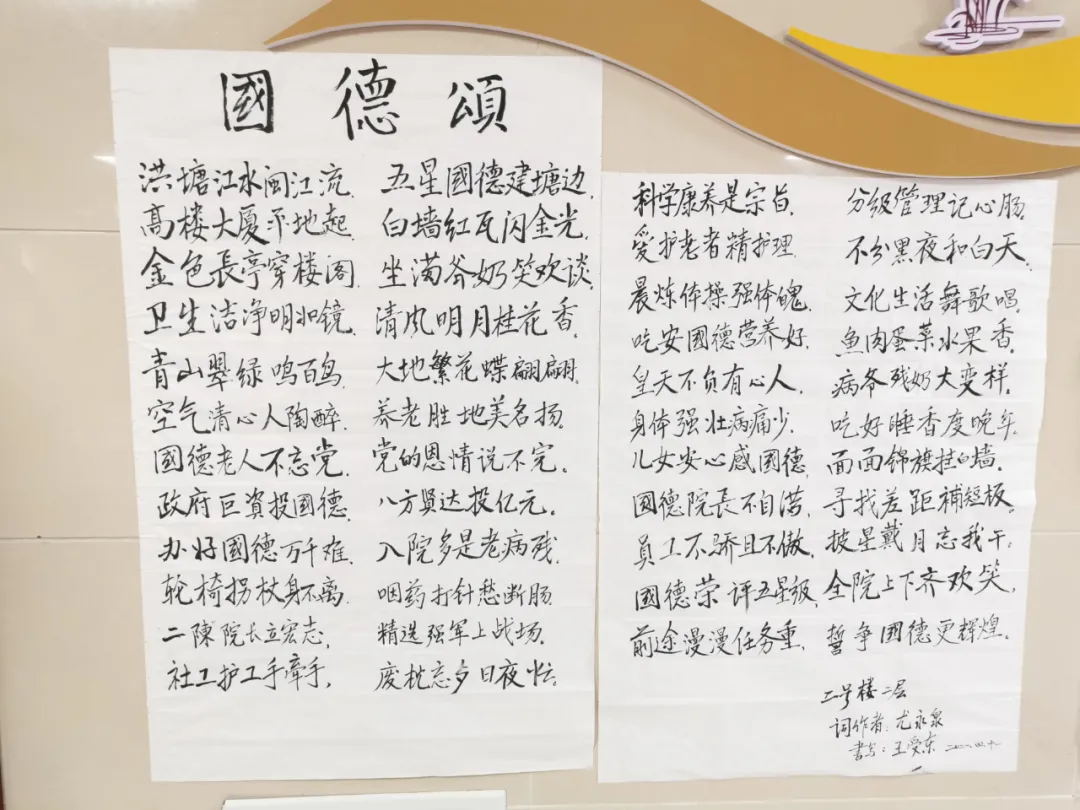 國德頌
洪塘江水闽江流 五星國德建塘边
高楼大厦平地起 白墙红瓦闪金光
金色長亭穿楼阁 坐满爷奶笑欢谈
卫生洁净明如镜 清风明月桂花香
青山翠绿鸣百鸟 大地繁花蝶翩翩
空气清心人陶醉 养老胜地美名扬
國德老人不忘党 党的恩情说不完
政府巨資投國德 八方贤达投亿元
办好國德万千难 入院多是老病残
轮椅拐杖身不离 咽药打针愁断肠
二陳院长立宏志 精选强军上战场
社工护工手牵手 废枕忘夕日夜忙
科学康养是宗旨 分级管理记心肠
爱护老者精护理 不分黑夜和白天
晨炼体操强体魄 文化生活舞歌唱
吃安國德营养好 魚肉蛋菜水果香
皇天不负有心人 病爷残奶大变样
身体强壮病痛少 吃好睡香度晚年
儿女安心感國德 面面锦旗挂白墙
國德院長不自满 寻找差距補短板
员工不骄且不傲 披星戴月忘我干
國德荣评五星级 全院上下齐欢笑
前途漫漫任务重 誓争國德更辉煌
二号楼二层
词作者：尤永泉
書写：王受东